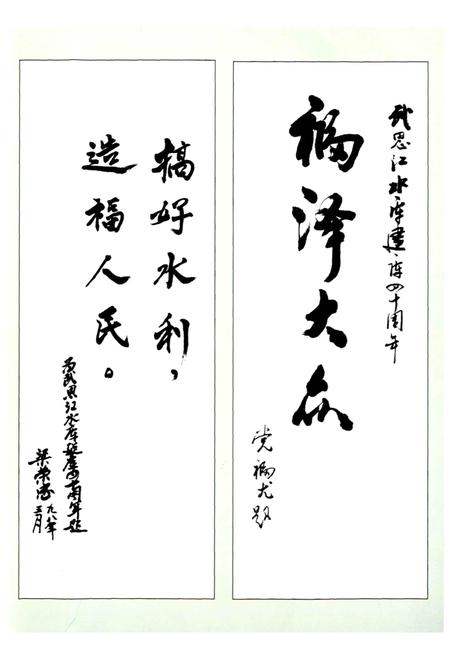 武思江水库建库四十周年
福泽大众
题
搞好水利，
造福人民。
为武思江水库建库四十周年题
梁荣
九八年
三月